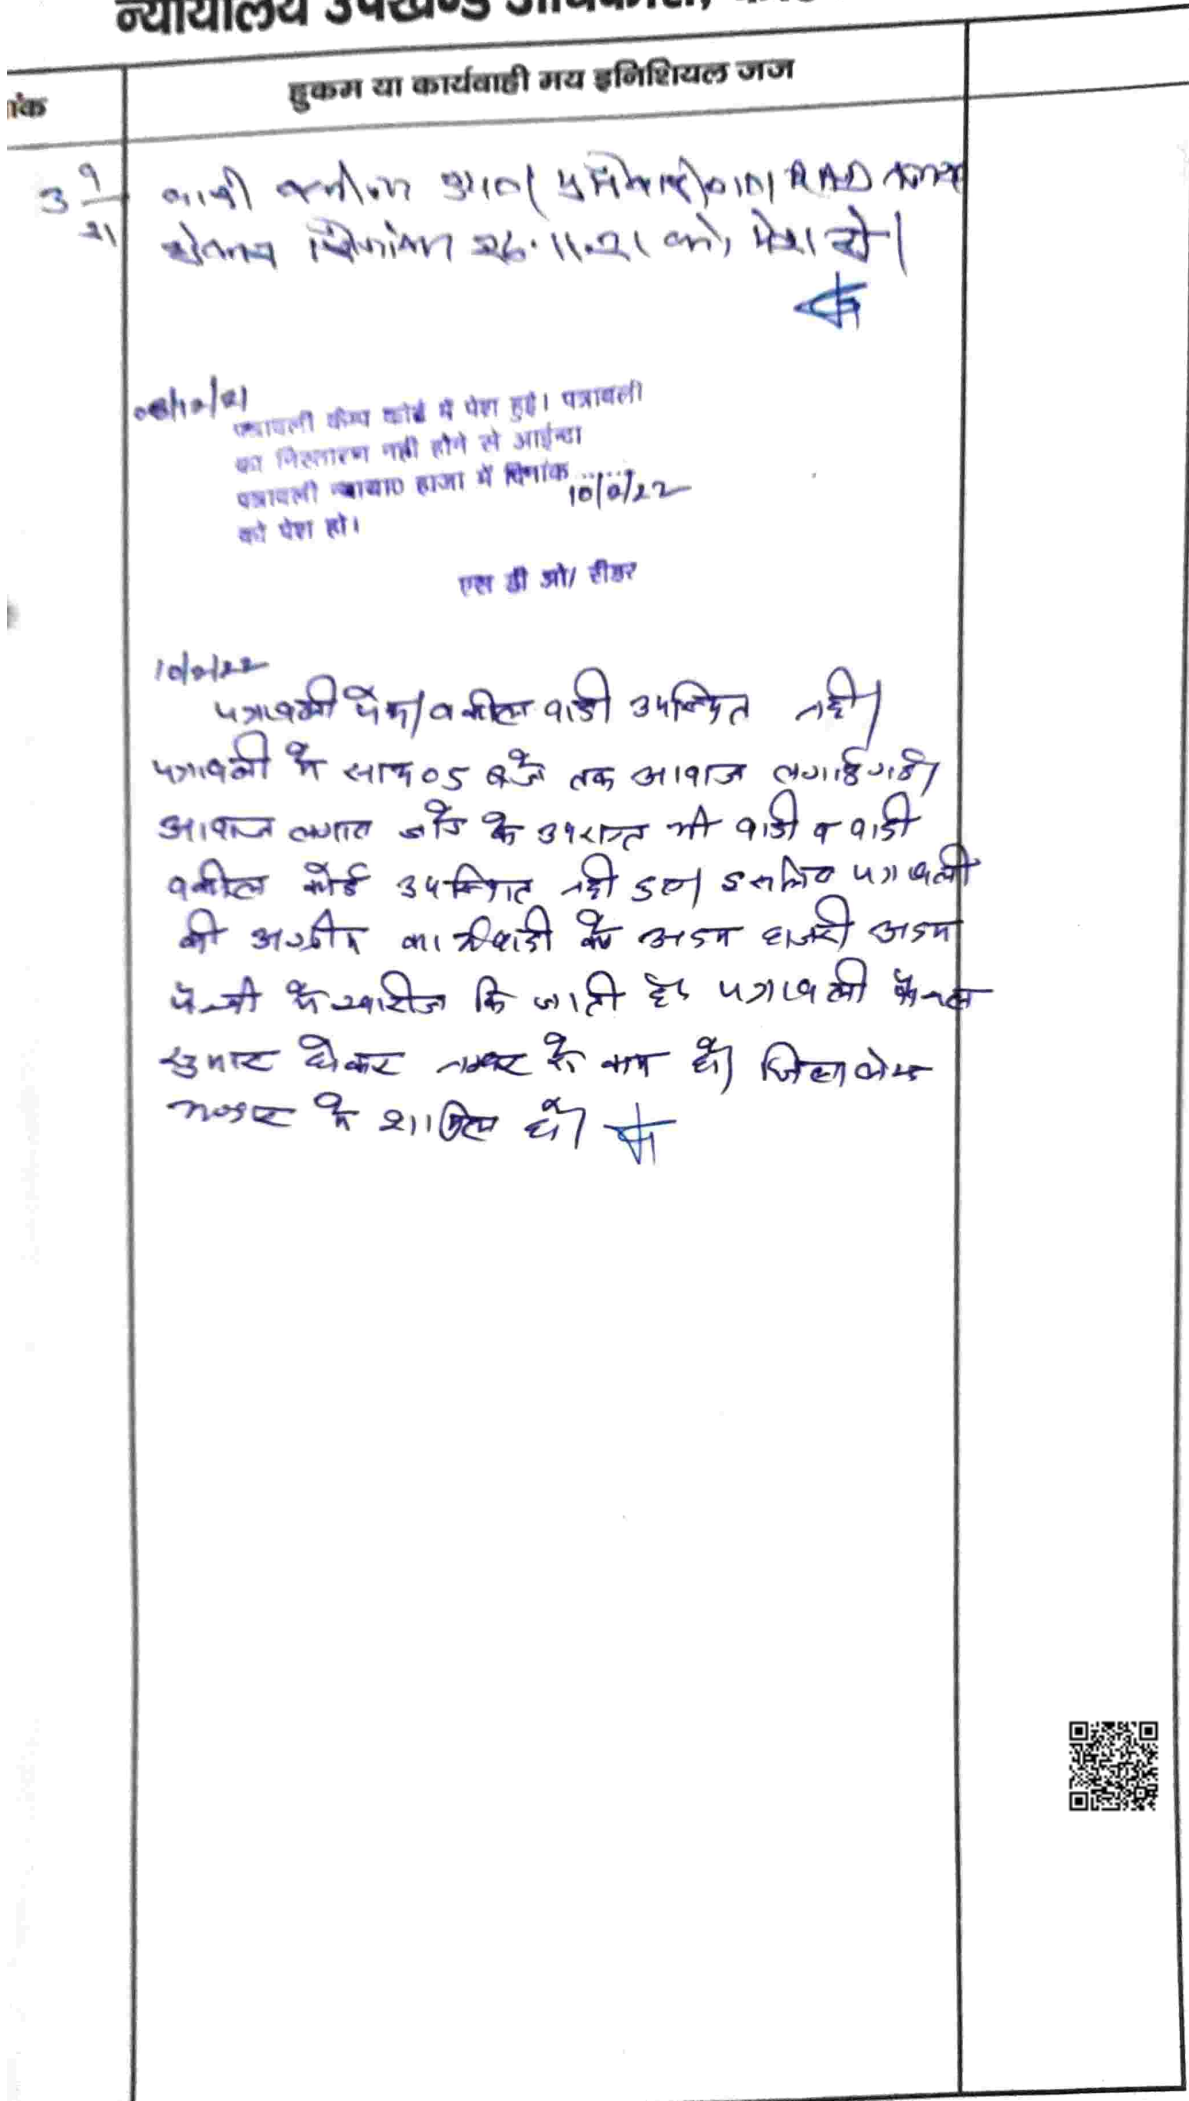 न्यायालय उपखण्ड अधिकारी,
ांक
हुकम या कार्यवाही मय इनिशियल जज
3 9/21
वादी वकील उप0। प्रतिवादी RAD
दिनांक 26.11.21 को पेश हो।
08/12/21
पत्रावली केम्प कोर्ट में पेश हुई। पत्रावली
का निस्तारण नही होने से आईन्दा
पत्रावली न्याया0 हाजा में दिनांक ......
को पेश हो।
एस डी ओ/ रीडर
पत्रावली पेश। वकील वादी उपस्थित नही।
पत्रावली में साय 05 बजे तक आवाज लगाई गई।
आवाज लगाए जाने के उपरान्त भी वादी व वादी
वकील कोई उपस्थित नही हुए। इसलिए पत्रावली
की अग्रीम कार्यवाही अदम हाजरी अदम
पैरवी में खारीज कि जाती है। पत्रावली फैसल
सुमार होकर नम्बर से कम हो।
के शामिल हो।